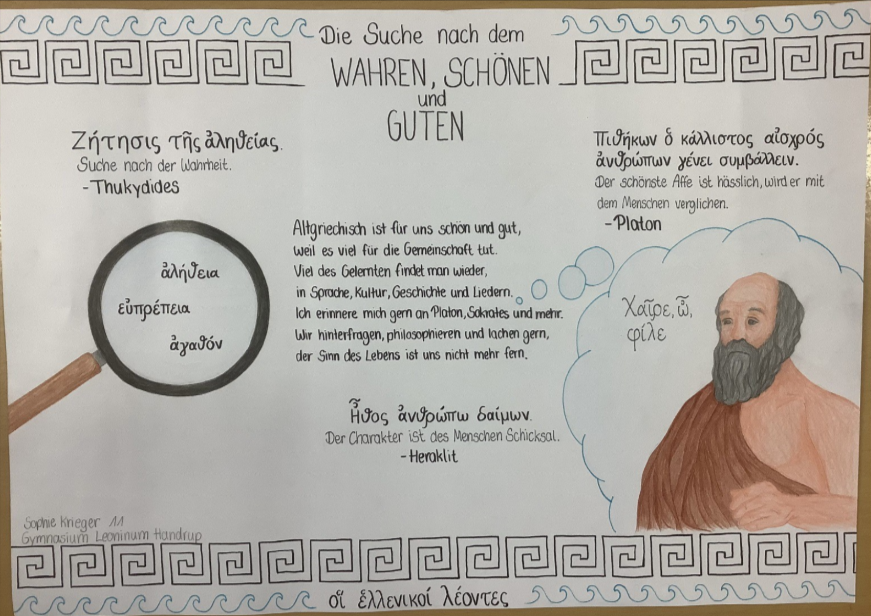 Die Suche nach dem
WAHREN, SCHÖNEN
und
GUTEN
Ζήτησις τῆς ἀληθείας.
Suche nach der Wahrheit.
- Thukydides
Πιθήκων ὁ κάλλιστος αἰσχρός
ἀνθρώπων γένει συμβάλλειν.
Der schönste Affe ist hässlich, wird er mit
dem Menschen verglichen.
- Platon
ἀλήθεια
εὐπρέπεια
ἀγαθόν
Altgriechisch ist für uns schön und gut,
weil es viel für die Gemeinschaft tut.
Viel des Gelernten findet man wieder,
in Sprache, Kultur, Geschichte und Liedern.
Ich erinnere mich gern an Platon, Sokrates und mehr.
Wir hinterfragen, philosophieren und lachen gern,
der Sinn des Lebens ist uns nicht mehr fern.
Χαῖρε, ὦ,
φίλε
Ἦθος ἀνθρώπω δαίμων.
Der Charakter ist des Menschen Schicksal.
- Heraklit
Sophie Krieger 11
Gymnasium Leoninum Handrup
οἵ ἑλλενικοί λέοντες